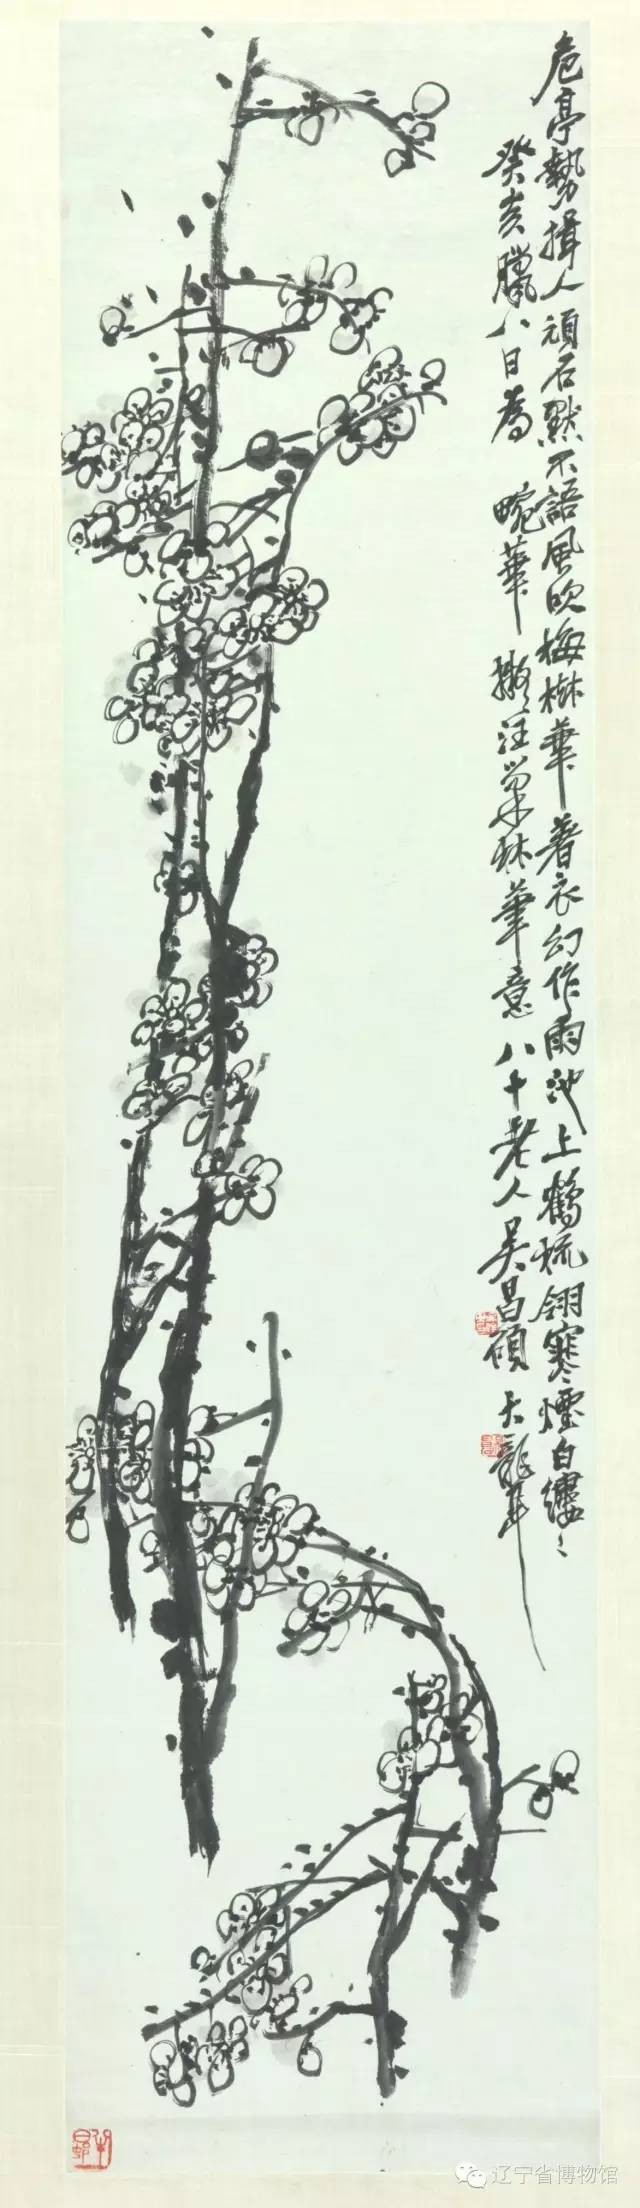 危亭勢揖人頑石默不語風吹梅樹華著衣幻作雨池上鶴梳翎寒煙白縷〻
癸亥臘八日為 畹華 擬汪巢林筆意 八十老人吳昌碩 大聾
辽宁省博物馆